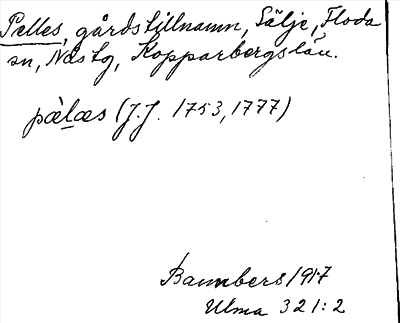 Pelles, gårdstillnamn, Sälje, Floda
sn, Nås tg, Kopparbergs län.
pæ̀læs (J.J. 1753, 1777)
Bannbers 1917
Ulma 321:2